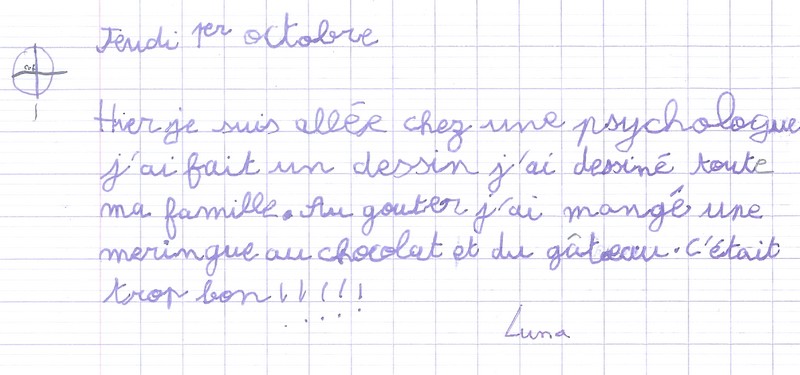 Jeudi 1er octobre
Hier je suis allée chez une psychologue
j'ai fait un dessin j'ai dessiné toute
ma famille. Au gouter j'ai mangé une
meringue au chocolat et du gâteau. C'était
trop bon !!!!!
Luna